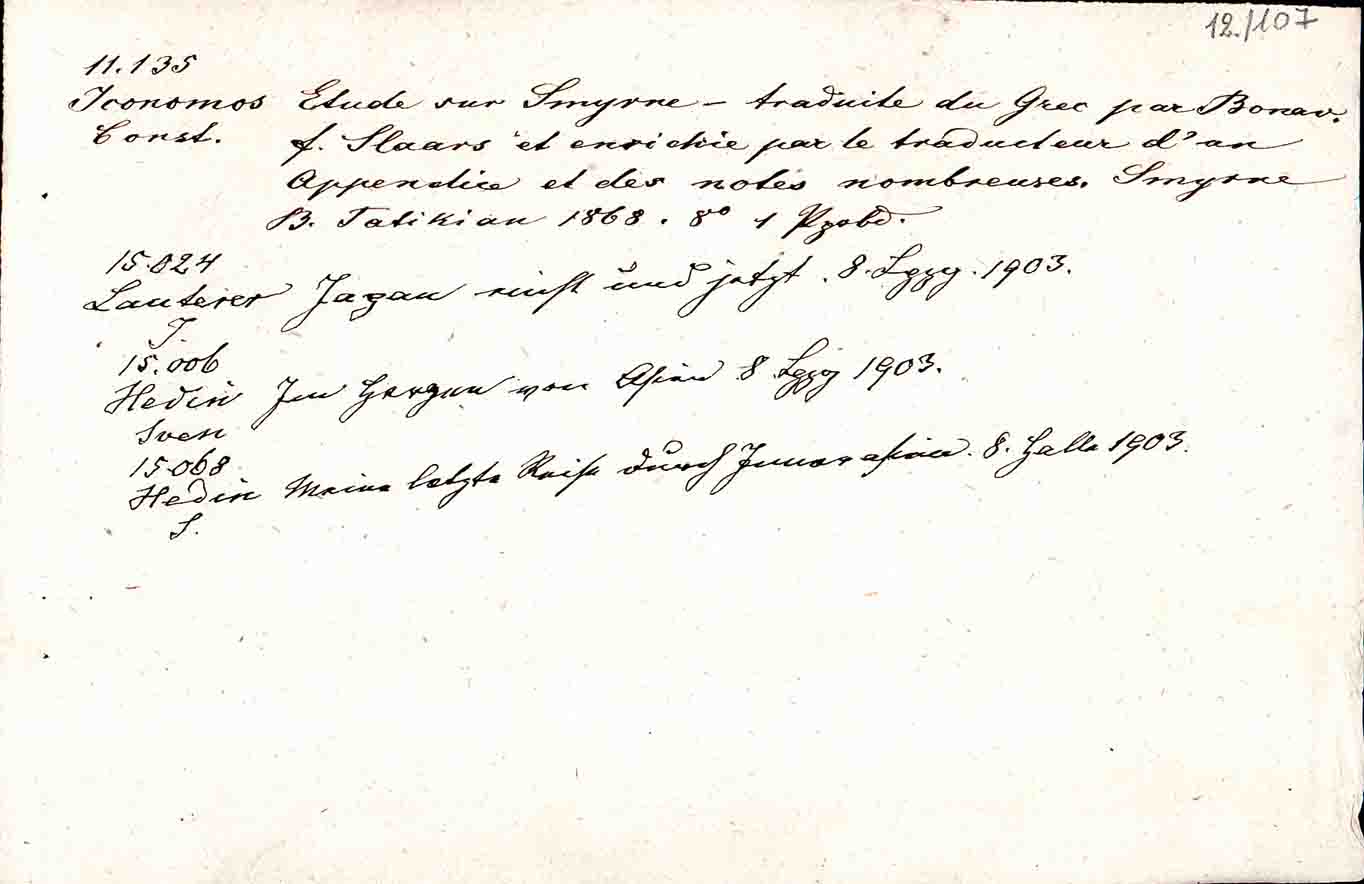 12./107
11.135
Iconomos Etude sur Smyrne – traduite du Grec par Bonav.
Const. f. Slaars et enrichie par le traducteur d'un
Appendice et des notes nombreuses. Smyrne
B. Tatikian 1868. 8° 1 Ppbd.
15.024
Lauterer Japan einst und jetzt. 8. Lpzg. 1903.
J.
15.006
Hedin Im Herzen von Asien 8. Lpzg 1903.
Sven
15.068
Hedin Meine letzte Reise durch Innerasien. 8. Halle 1903.
S.